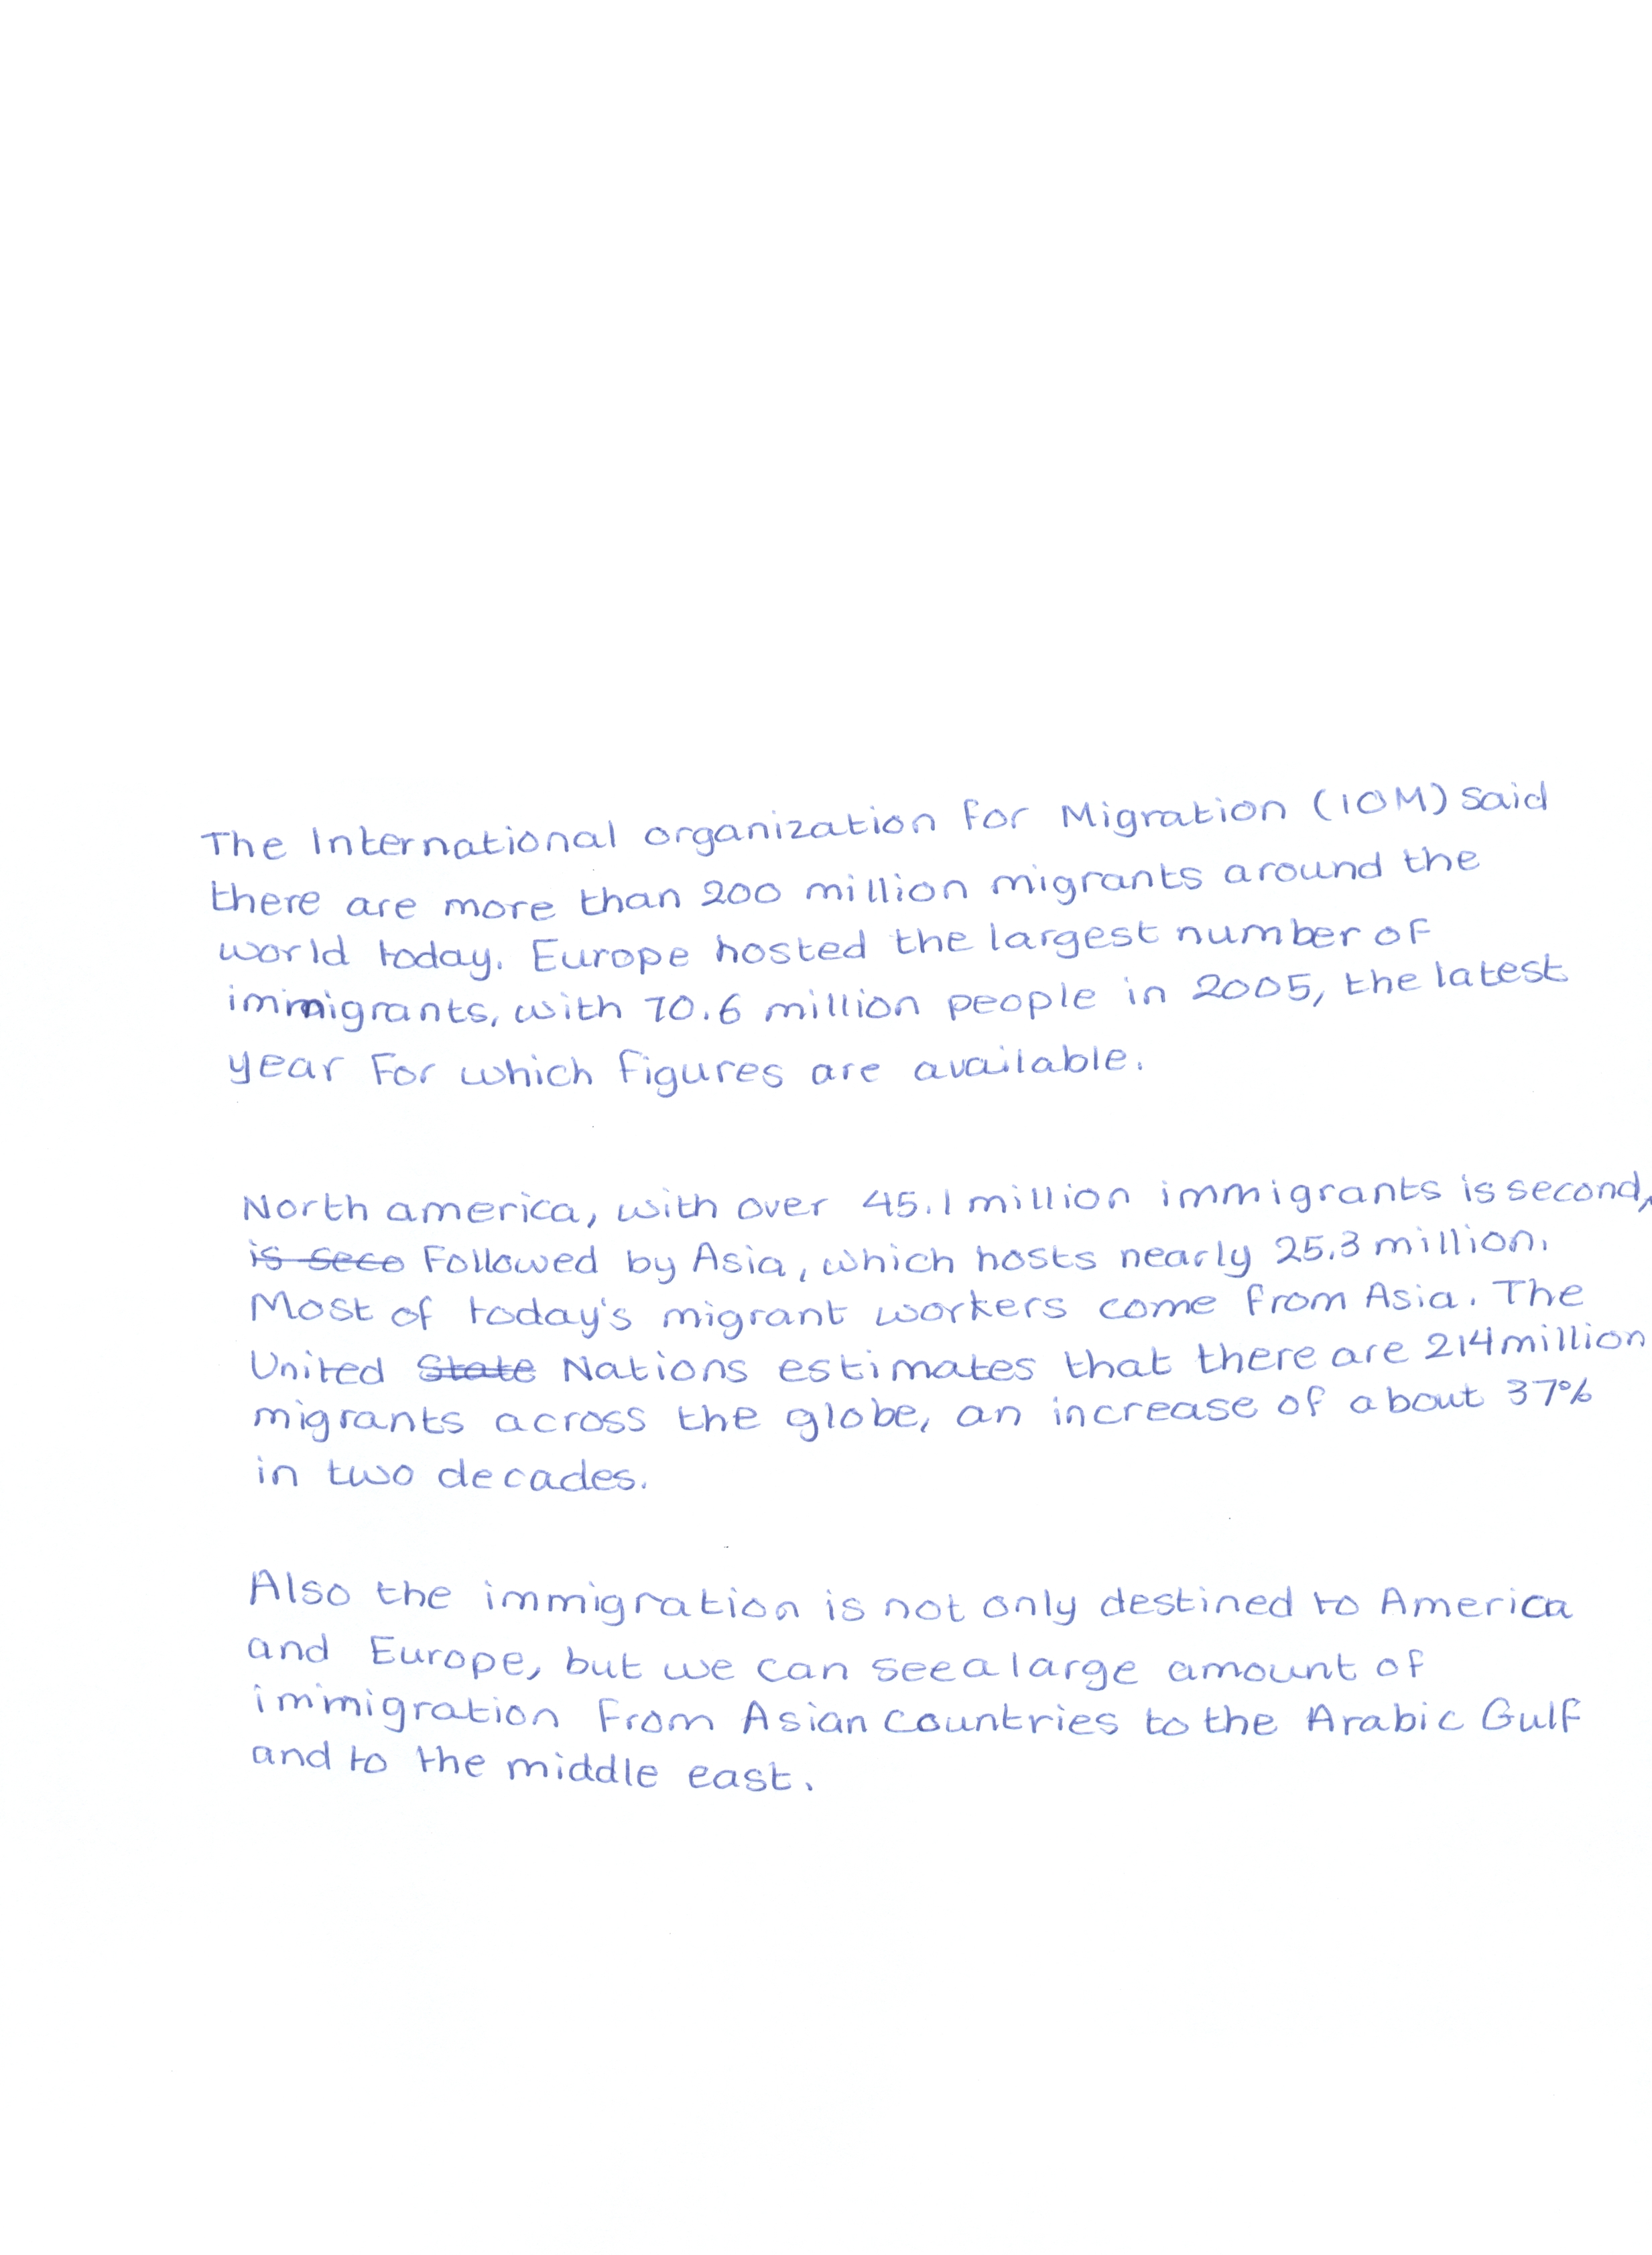 The International organization for Migration (IOM) said
there are more than 200 million migrants around the
world today. Europe hosted the largest number of
immigrants, with 70.6 million people in 2005, the latest
year For which figures are available.
North america, with over 45.1 million immigrants is second,
is seco Followed by Asia, which hosts nearly 25.3 million.
Most of today's migrant workers come from Asia. The
United State Nations estimates that there are 214 million
migrants across the globe, an increase of about 37%
in two decades.
Also the immigration is not only destined to America
and Europe, but we can see a large amount of
immigration From Asian countries to the Arabic Gulf
and to the middle east.